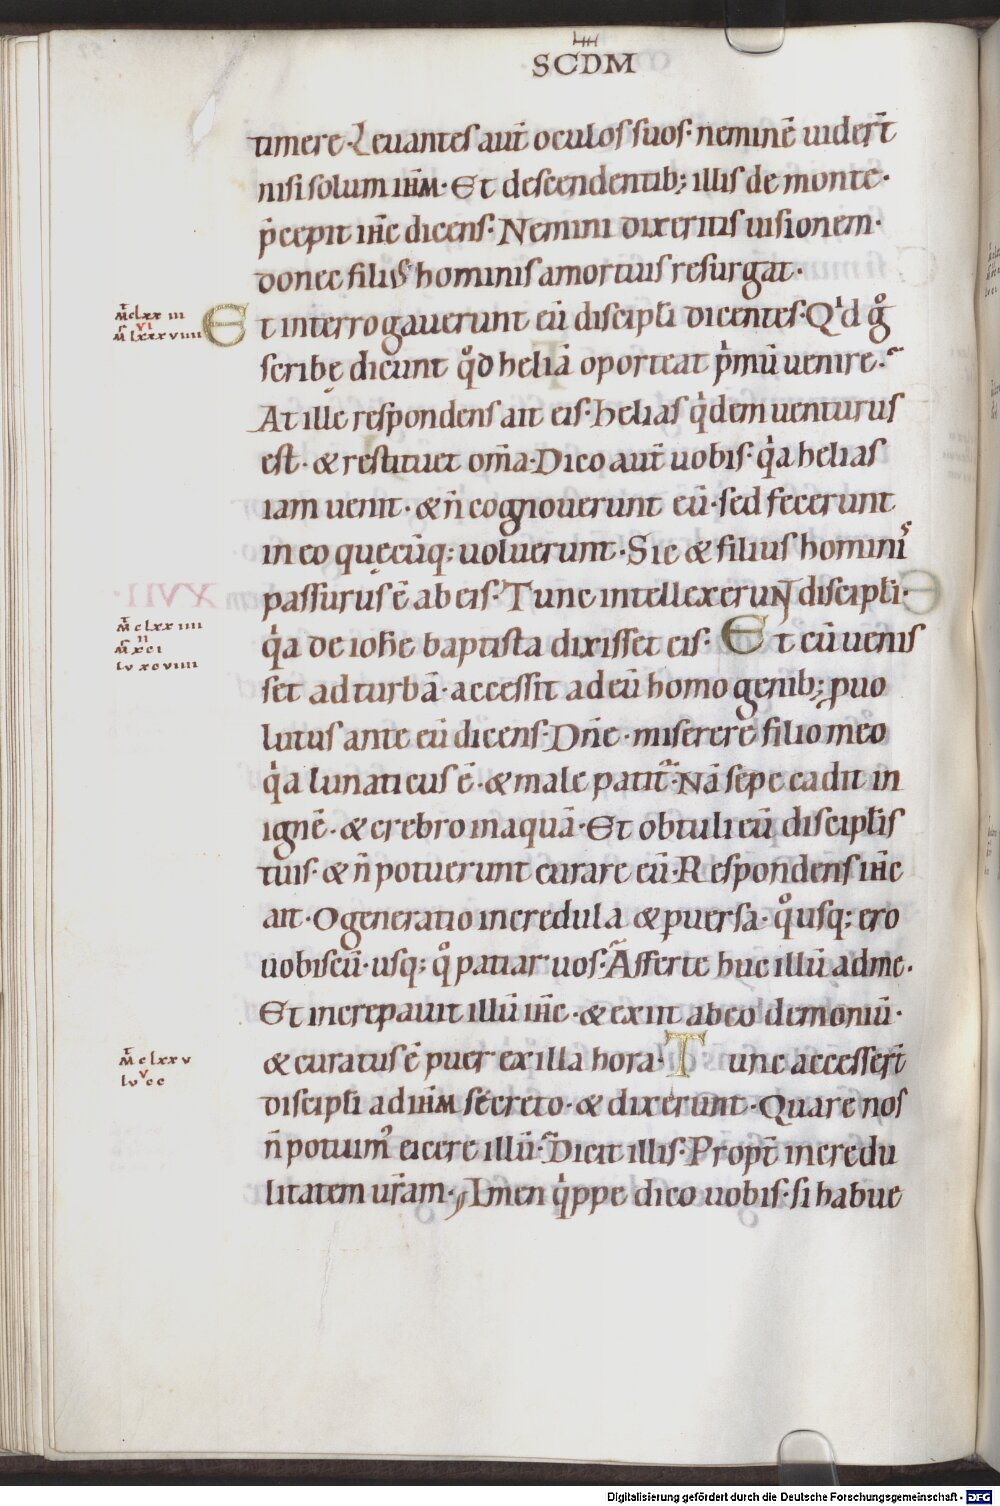 LIII
SCDM
timere· Leuantes aut̄ oculos suos· neminē uider̄t
nisi solum ih̄m· Et descendentib; illis de monte·
p̄cepit ih̄c dicens· Nemini dixeritis uisionem·
donec filius hominis amortuis resurgat·
Et interrogauerunt eū discipl̄i dicentes· Qͥd gͦ
scribę dicunt qͦd heliā oporteat pͥmū uenire?
At ille respondens ait eis· helias qͥdem uenturus
est· & restituet om̄a· Dico aut̄ uobis· qͥa helias
iam uenit· & n̄ cognouerunt eū· sed fecerunt
in eo quęcūq; uoluerunt· Sic & filius hominis
passurus ē ab eis· Tunc intellexerunt discipl̄i·
qͥa de ioh̄e baptista dixisset eis· Et cū uenis
set ad turbā· accessit ad eū homo genib; ꝓuo
lutus ante eū dicens· Dn̄e· miserere filio meo
qͥa lunaticus ē· & male patit᷑· Nā sepe cadit in
ignē· & crebro in aquā· Et obtuli eū discipl̄is
tuis· & n̄ potuerunt curare eū· Respondens ih̄c
ait· O generatio incredula & ꝑuersa· qͦusq; ero
uobiscū· usq; qͦ patiar uos? Afferte huc illū ad me·
Et increpauit illū ih̄c· & exiit ab eo demoniū·
& curatus ē puer ex illa hora· Tunc accesser̄t
discipl̄i ad ih̄m secreto· & dixerunt· Quare nos
n̄ potuim᾽ eicere illū? Dicit illis· Propt̄ incredu
litatem ur̄am· Amen qͥppe dico uobis· si habue
M clxx iii
VI
M lxxxviiii
M clxxiiii
II
M xci
lv xcviiii
M clxxv
V
lv cc
Digitalisierung gefördert durch die Deutsche Forschungsgemeinschaft - DFG